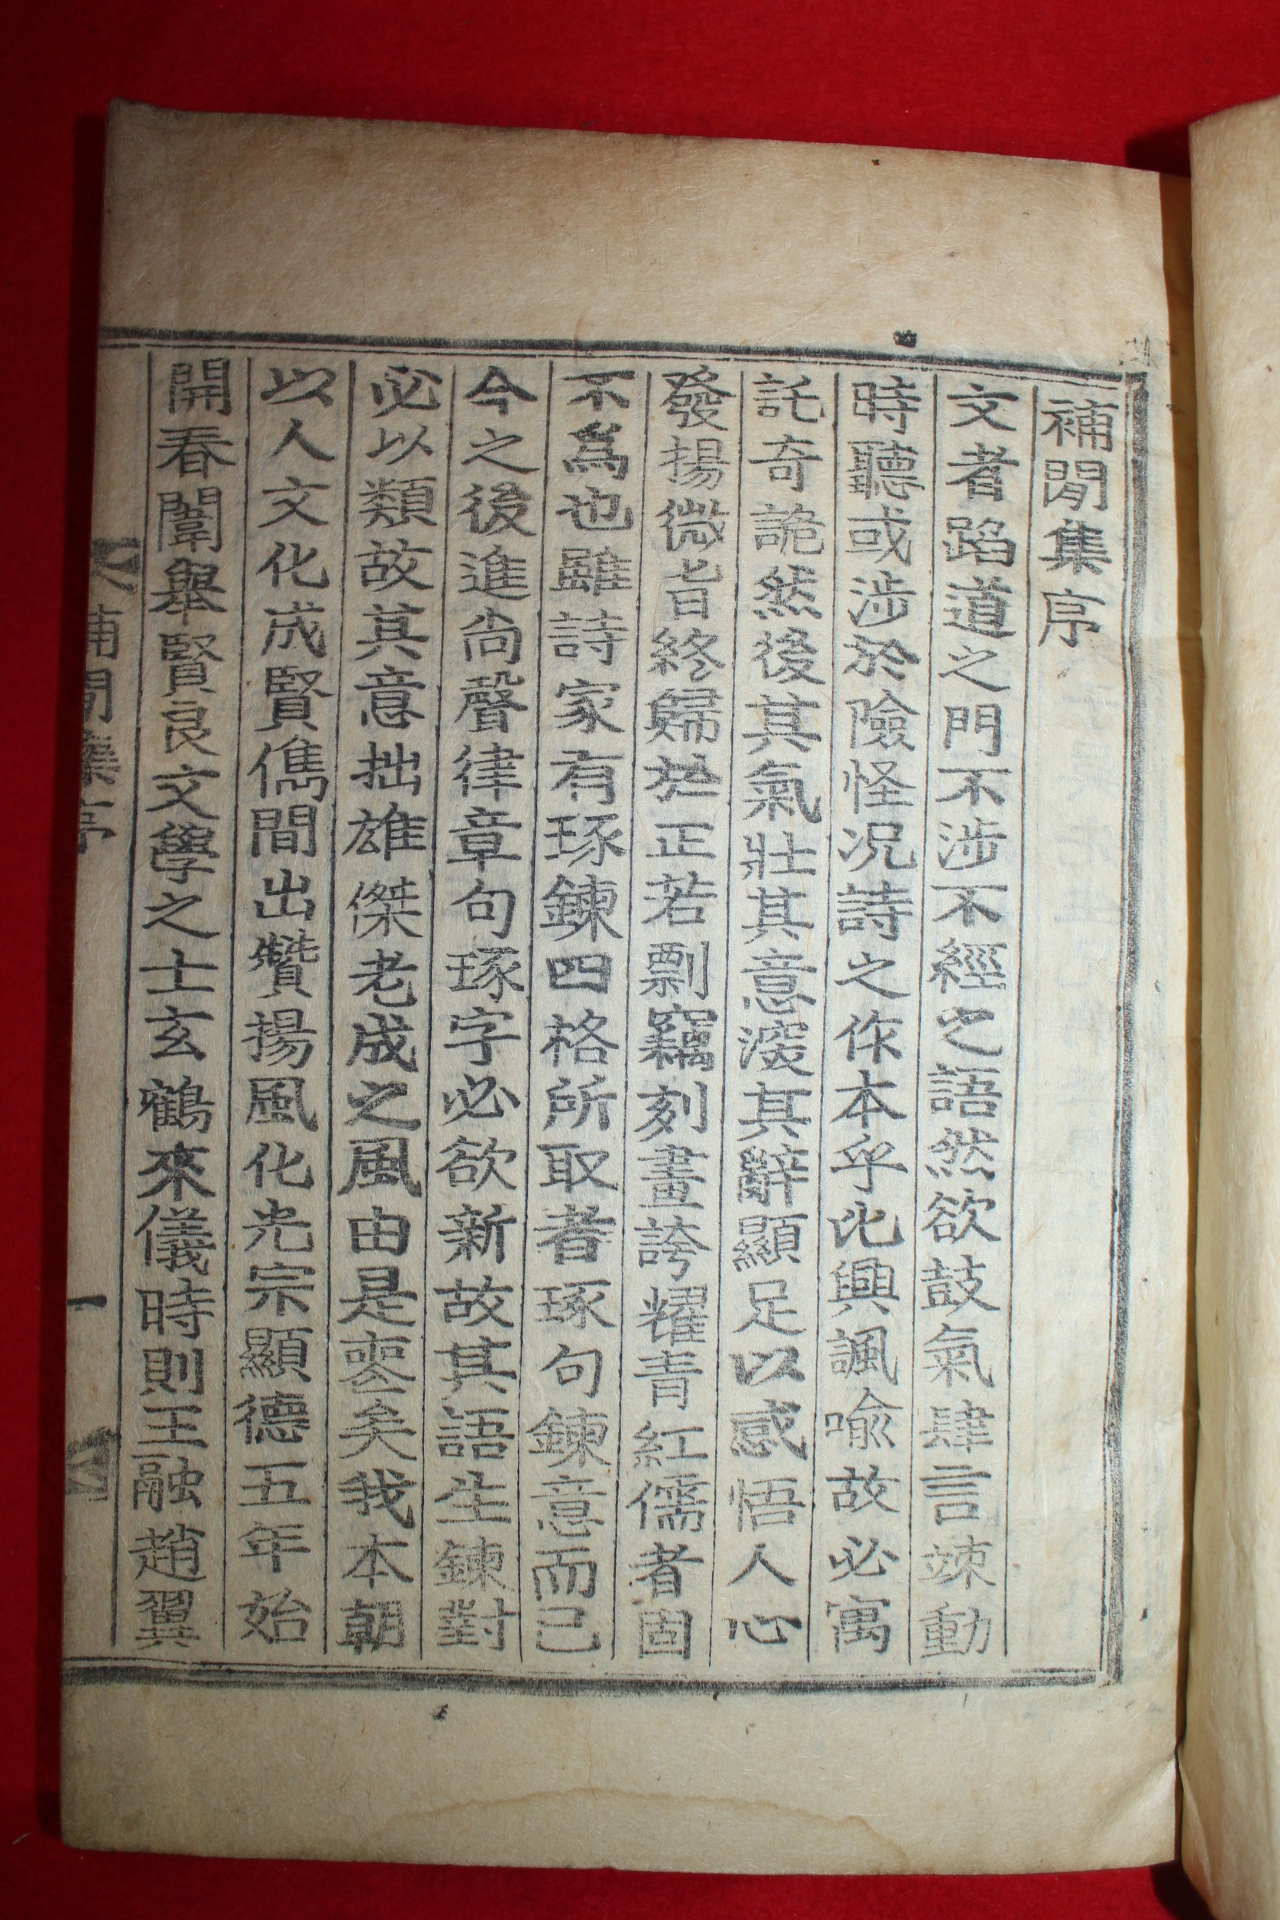 補閑集序
文者蹈道之門不涉不經之語然欲鼓氣肆言竦動
時聽或涉於險怪况詩之作本乎比興諷喩故必寓
託奇詭然後其氣壯其意深其辭顯足以感悟人心
發揚微旨終歸於正若剽竊刻畫誇耀青紅儒者固
不爲也雖詩家有琢鍊四格所取者琢句鍊意而已
今之後進尙聲律章句琢字必欲新故其語生鍊對
必以類故其意拙雄傑老成之風由是喪矣我本朝
以人文化成賢儁間出贊揚風化光宗顯德五年始
開春闈擧賢良文學之士玄鶴來儀時則王融趙翼
補閑集序
一